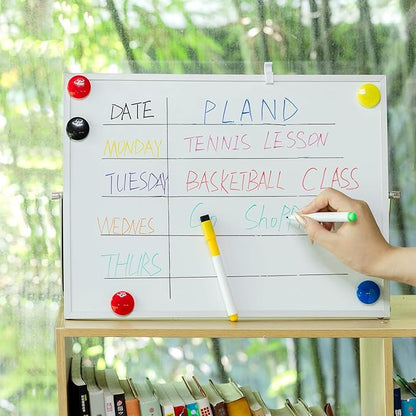 DATE PLAND
MONDAY TENNIS LESSON
TUESDAY BASKETBALL CLASS
WEDNES Go SHOPP
THURS